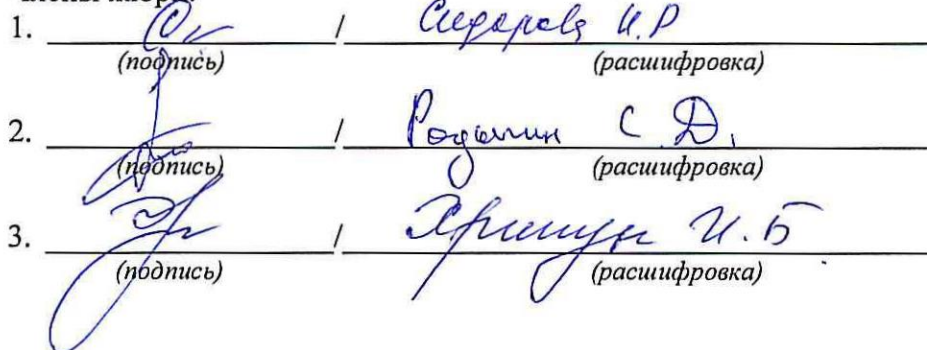 1. / Сидорова И.Р
(подпись) (расшифровка)
2. / Родынин С.Д.
(подпись) (расшифровка)
3. / И.Б
(подпись) (расшифровка)